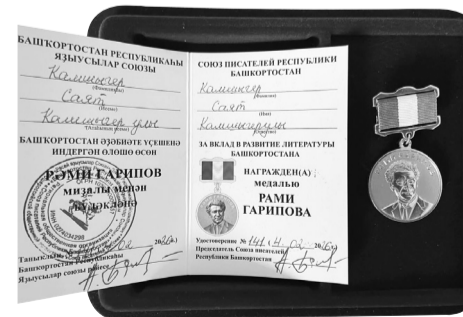 БАШҠОРТОСТАН РЕСПУБЛИКАҺЫ
ЯҘЫУСЫЛАР СОЮЗЫ
Камшыгер
(Фамилияһы)
Саят
(Исеме)
Камшыгер улы
(Атаһының исеме)
БАШҠОРТОСТАН ӘҘӘБИӘТЕ ҮҪЕШЕНӘ
ИНДЕРГӘН ӨЛӨШӨ ӨСӨН
РӘМИ ҒАРИПОВ
миҙалы менән
бүләкләнә
Таныҡлыҡ
Башҡортостан Республикаһы
Яҙыусылар союзы рәйесе
СОЮЗ ПИСАТЕЛЕЙ РЕСПУБЛИКИ
БАШКОРТОСТАН
Камшыгер
(Фамилия)
Саят
(Имя)
Камшыгерулы
(Отчество)
ЗА ВКЛАД В РАЗВИТИЕ ЛИТЕРАТУРЫ
БАШКОРТОСТАНА
НАГРАЖДЕН(А)
медалью
РАМИ
ГАРИПОВА
Удостоверение №
Председатель Союза писателей
Республики Башкортостан